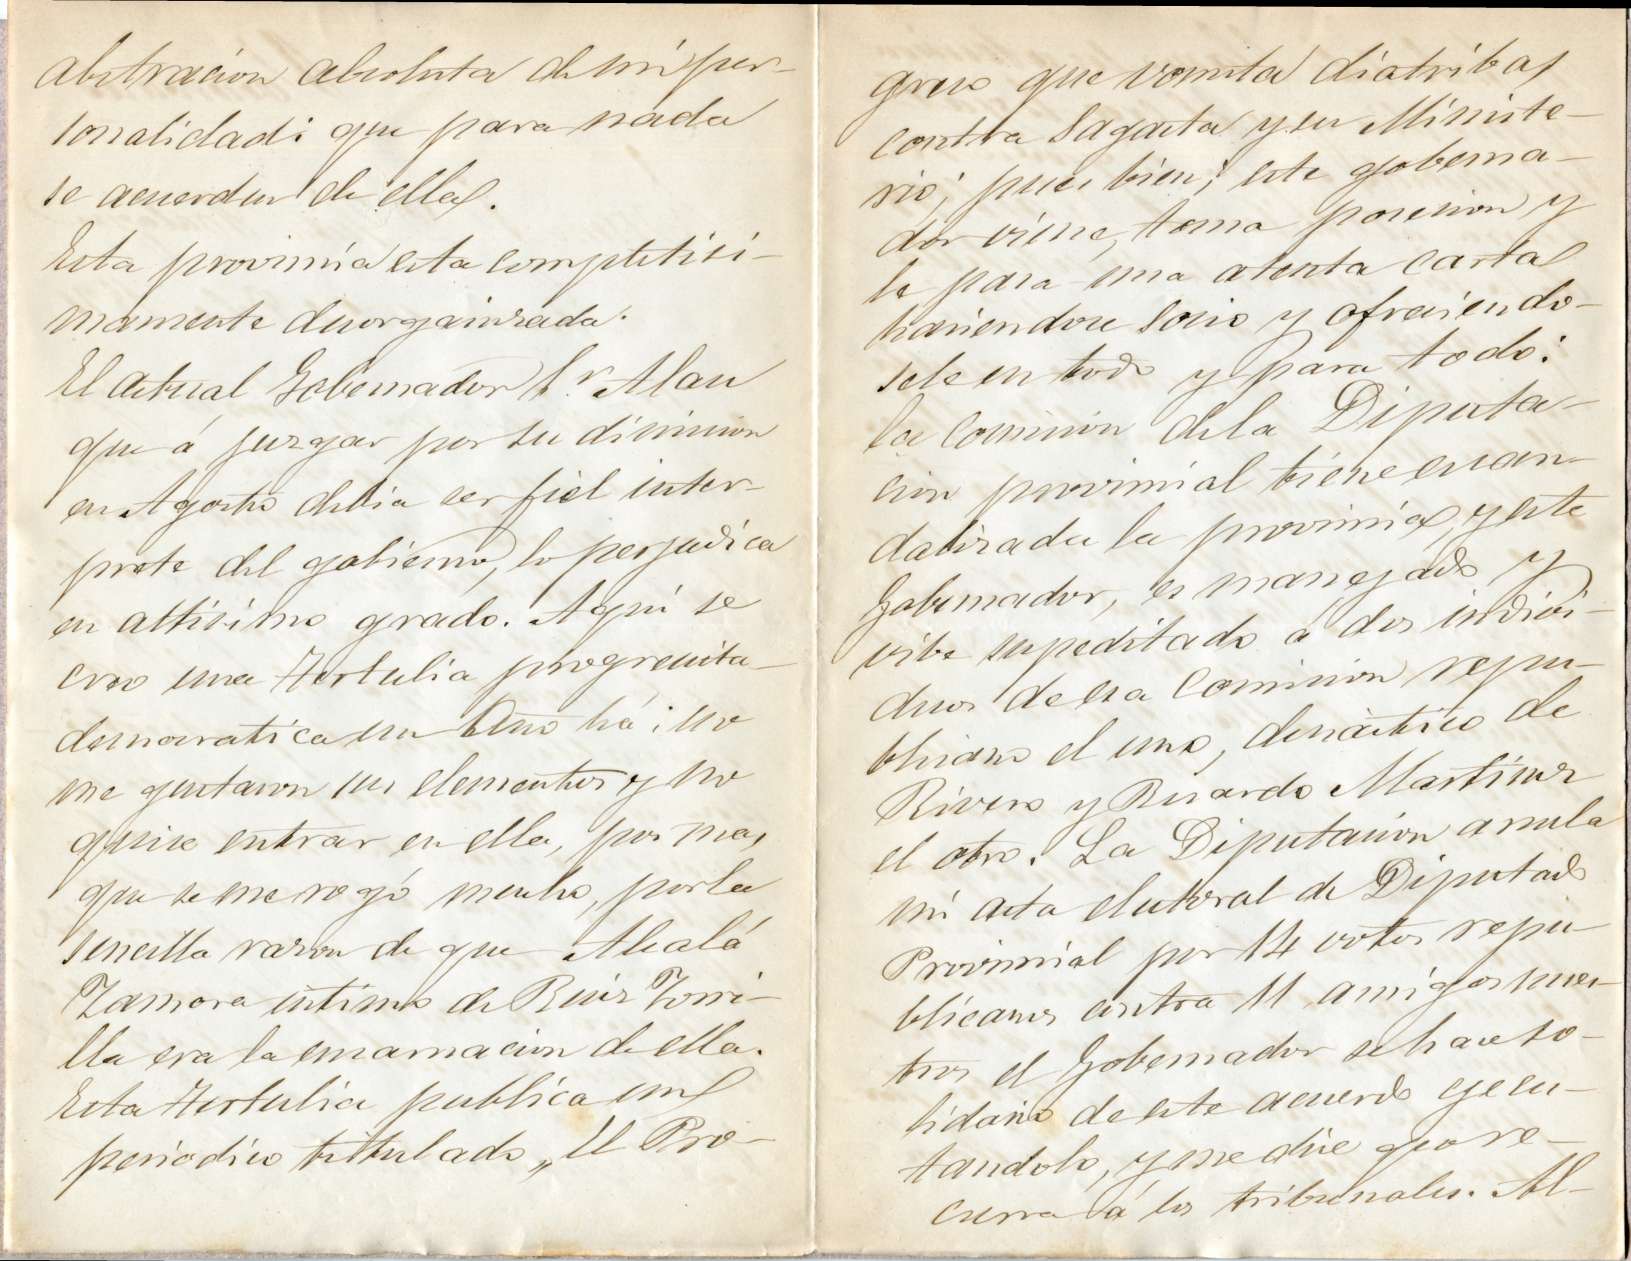 abstracion absoluta de mi per-
sonalidad: que para nada
se acuerden de ella.
Esta provincia esta completisi-
mamente desorganizada.
El actual Gobernador Sr. Alau
que á juzgar por su dimision
en Agosto debia ser fiel inter-
prete del gobierno, lo perjudica
en altisimo grado. Aqui se
creo una Tertulia progresista-
democratica un Año há: no
me gustaron sus elementos y no
quise entrar en ella, por mas
que se me rogó mucho, por la
sencilla razon de que Alcalá
Zamora intimo de Ruiz Zorri-
lla era la encarnacion de ella.
Esta Tertulia publica un
periodico titulado „El Pro-
greso que vomita diatribas
contra Sagasta y su Ministe-
rio; pues bien; este goberna-
dor viene, toma posesion y
le pasa una atenta carta
haciendose socio y ofreciendo-
sele en todo y para todo:
la Comision de la Diputa-
cion provincial tiene escan-
dalizada la provincia, y este
Gobernador, es manejado y
vibe supeditado a dos indivi-
duos de esa Comision repu-
blicano el uno, denàstico de
Rivero y Ricardo Martinez
el otro. La Diputacion anula
mi acta electoral de Diputado
Provincial por 14 votos repu-
blicanos contra 11 amigos nues-
tros el Gobernador se hace so-
lidario de este acuerdo ejecu-
tandolo, y me dice que re-
curra á los tribunales. Al-